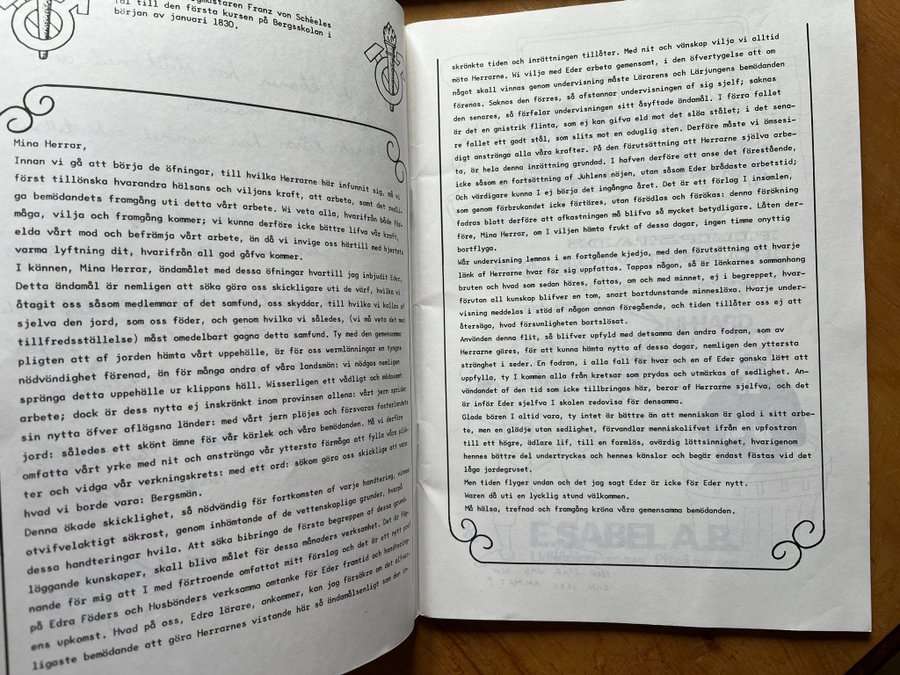 mästaren Franz von Schéeles
tal till den första kursen på Bergsskolan i
början av januari 1830.
Mina Herrar,
Innan vi gå att börja de öfningar, till hvilka Herrarne här infunnit sig, må vi
först tillönska hvarandra hälsans och viljans kraft, att arbeta, samt det redli-
ga bemödandets framgång uti detta vårt arbete. Wi veta alla, hvarifrån både för-
måga, vilja och framgång kommer; vi kunna derföre icke bättre lifva vår kraft,
elda vårt mod och befrämja vårt arbete, än då vi inviga oss härtill med hjertats
varma lyftning dit, hvarifrån all god gåfva kommer.
I kännen, Mina Herrar, ändamålet med dessa öfningar hvartill jag inbjudit Eder.
Detta ändamål är nemligen att söka göra oss skickligare uti de värf, hvilka vi
åtagit oss såsom medlemmar af det samfund, oss skyddar, till hvilka vi kallas af
sjelva den jord, som oss föder, och genom hvilka vi således, (vi må veta det med
tillfredsställelse) måst omedelbart gagna detta samfund. Ty med den gemensamma
pligten att af jorden hämta vårt uppehälle, är för oss wermlänningar en tyngre
nödvändighet förenad, än för många andra af våra landsmän: vi nödgas nemligen
spränga detta uppehälle ur klippans häll. Wisserligen ett vådligt och mödosamt
arbete; dock är dess nytta ej inskränkt inom provinsen allena: vårt jern sprider
sin nytta öfver aflägsna länder: med vårt jern plöjes och försvaras fosterlandets
jord: således ett skönt ämne för vår kärlek och våra bemödanden. Må vi derföre
omfatta vårt yrke med nit och anstränga vår yttersta förmåga att fylla våra plik-
ter och vidga vår verkningskrets: med ett ord: sökom göra oss skicklige att vara
hvad vi borde vara: Bergsmän.
Denna ökade skicklighet, så nödvändig för fortkomsten af varje handtering, vinnes
otvifvelaktigt säkrast, genom inhämtande af de vettenskapliga grunder, hvarpå
dessa handteringar hvila. Att söka bibringa de första begreppen af dessa grund-
läggande kunskaper, skall bliva målet för dessa månaders verksamhet. Det är fäg-
nande för mig att I med förtroende omfattat mitt förslag och det är ett nytt prof
på Edra Fäders och Husbönders verksamma omtanke för Eder framtid och handtering-
ens upkomst. Hvad på oss, Edra lärare, ankommer, kan jag försäkra om det alfvar-
ligaste bemödande att göra Herrarnes vistande här så ändamålsenligt som den in-
skränkta tiden och inrättningen tillåter. Med nit och vänskap vilja vi alltid
möta Herrarne. Wi vilja med Eder arbeta gemensamt, i den öfvertygelse att om
något skall vinnas genom undervisning måste Lärarens och Lärjungens bemödanden
förenas. Saknas den förres, så afstannar undervisningen af sig sjelf; saknas
den senares, så förfelar undervisningen sitt åsyftade ändamål. I förra fallet
är det en gnistrik flinta, som ej kan gifva eld mot det slöa stålet; i det sena-
re fallet ett godt stål, som slits mot en oduglig sten. Derföre måste vi ömsesi-
digt anstränge alla våra krafter. På den förutsättning att Herrarne själva arbe-
ta, är hela denna inrättning grundad. I hafven derföre att anse det förestående,
icke såsom en fortsättning af Juhlens nöjen, utan såsom Eder brådaste arbetstid;
Och värdigare kunna I ej börja det ingångna året. Det är ett förlag I insamlen,
som genom förbrukandet icke förtöres, utan förädlas och förökas: denna förökning
fodras blott derföre att afkastningen må blifva så mycket betydligare. Låten der-
före, Mina Herrar, om I viljen hämta frukt af dessa dagar, ingen timme onyttig
bortflyga.
Wår undervisning lemnos i en fortgående kjedja, med den förutsättning att hvarje
länk af Herrarne hvar för sig uppfattas. Tappas någon, så är länkarnes sammanhang
bruten och hvad som sedan höres, fattas, om och med minnet, ej i begreppet, hvar-
förutan all kunskap blifver en tom, snart bortdunstande minnesläxa. Hvarje under-
visning meddelas i stöd af någon annan föregående, och tiden tillåter oss ej att
återsäga, hvad försumligheten bortslösat.
Använden denna flit, så blifver upfyld med detsamma den andra fodran, som av
Herrarne göres, för att kunna hämta nytta af dessa dagar, nemligen den yttersta
stränghet i seder. En fodran, i alla fall för hvar och en af Eder ganska lätt att
uppfylla, ty I kommen alla från kretsar som prydas och utmärkas af sedlighet. An-
vändandet af den tid som icke tillbringas här, beror af Herrarne sjelfva, och det
är inför Eder sjelfva I skolen redovisa för densamma.
Glade bören I altid vara, ty intet är bättre än att menniskan är glad i sitt arbe-
te, men en glädje utan sedlighet, förvandlar menniskolifvet ifrån en upfostran
till ett högre, ädlare lif, till en formlös, ovärdig lättsinnighet, hvarigenom
hennes bättre del undertryckes och hennes känslor och begär endast fästas vid det
låga jordegruset.
Men tiden flyger undan och det jag sagt Eder är icke för Eder nytt.
Waren då uti en lycklig stund välkommen.
Må hälsa, trefnad och framgång kröna våra gemensamma bemödanden.